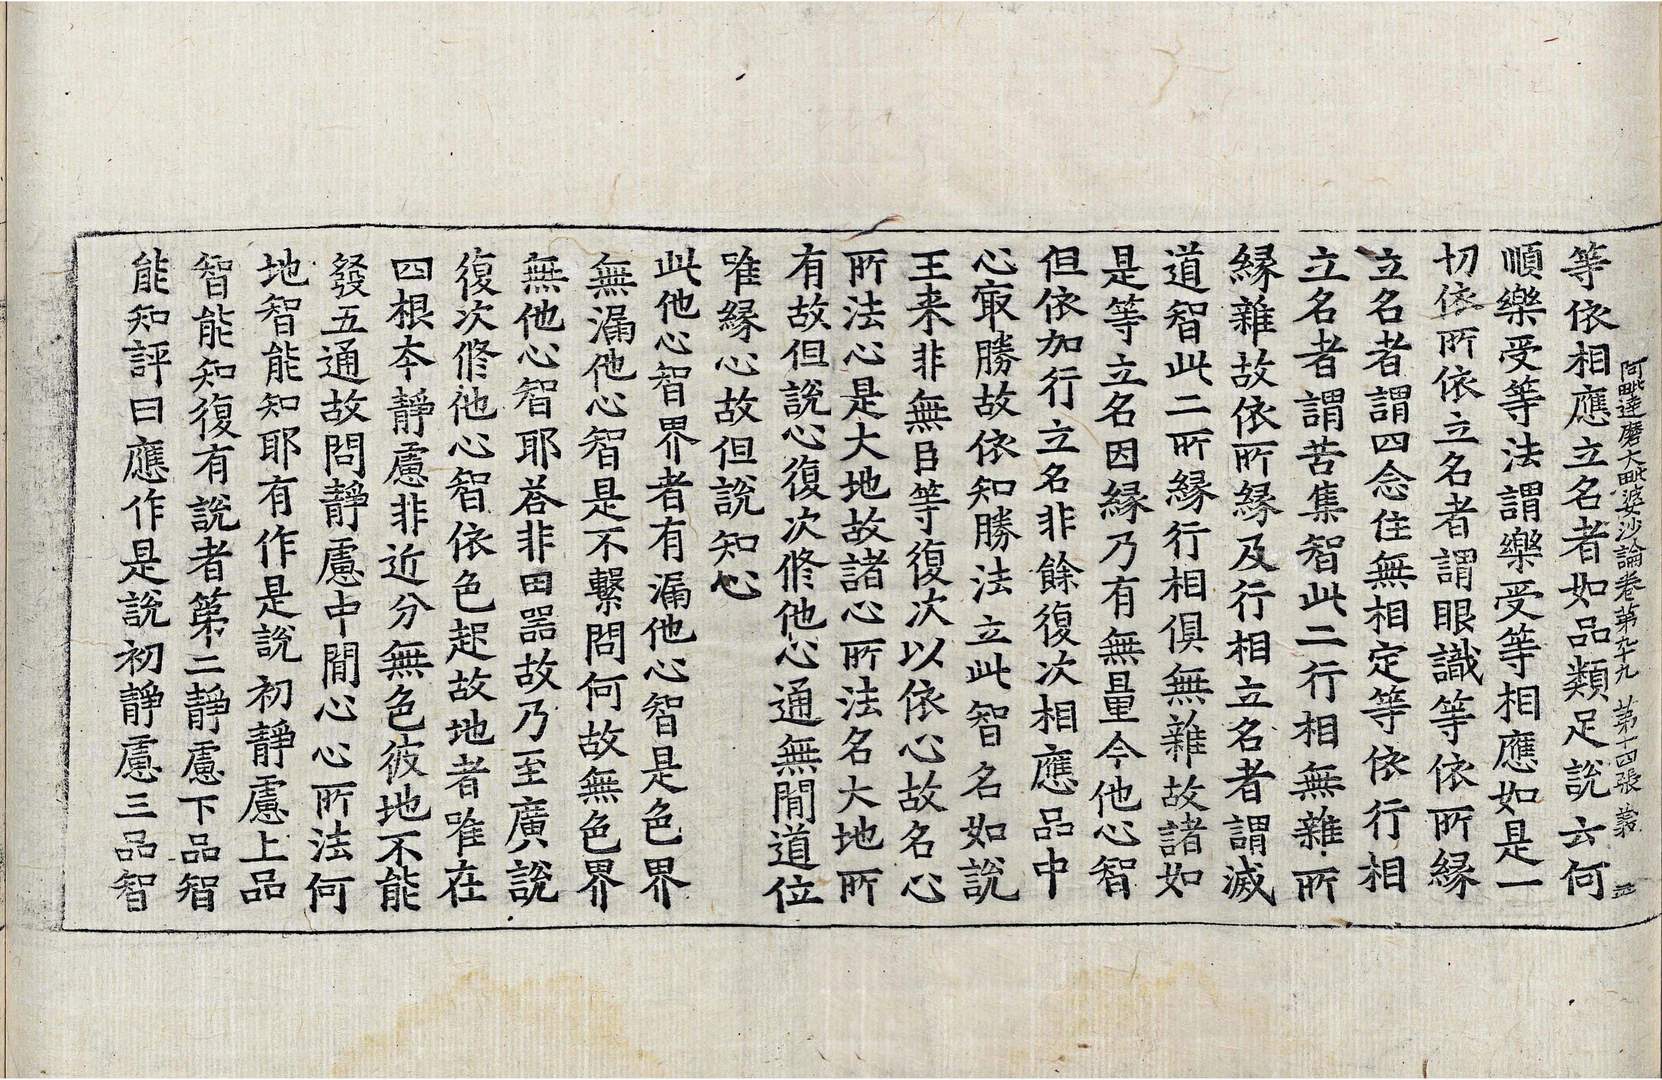 阿毗達磨大毗婆沙論卷第九十九 第十四張 義
等依相應立名者如品類足說云何
順樂受等法謂樂受等相應如是一
切依所依立名者謂眼識等依所緣
立名者謂四念住無相定等依行相
立名者謂苦集智此二行相無雜所
緣雜故依所緣及行相立名者謂滅
道智此二所緣行相俱無雜故諸如
是等立名因緣乃有無量今他心智
但依加行立名非餘復次相應品中
心㝡勝故依知勝法立此智名如說
王来非無臣等復次以依心故名心
所法心是大地故諸心所法名大地所
有故但說心復次修他心通無閒道位
唯緣心故但說知心
此他心智界者有漏他心智是色界
無漏他心智是不繫問何故無色界
無他心智耶荅非田器故乃至廣說
復次修他心智依色起故地者唯在
四根夲靜慮非近分無色彼地不能
發五通故問靜慮中閒心心所法何
地智能知耶有作是說初靜慮上品
智能知復有說者第二靜慮下品智
能知評曰應作是說初靜慮三品智